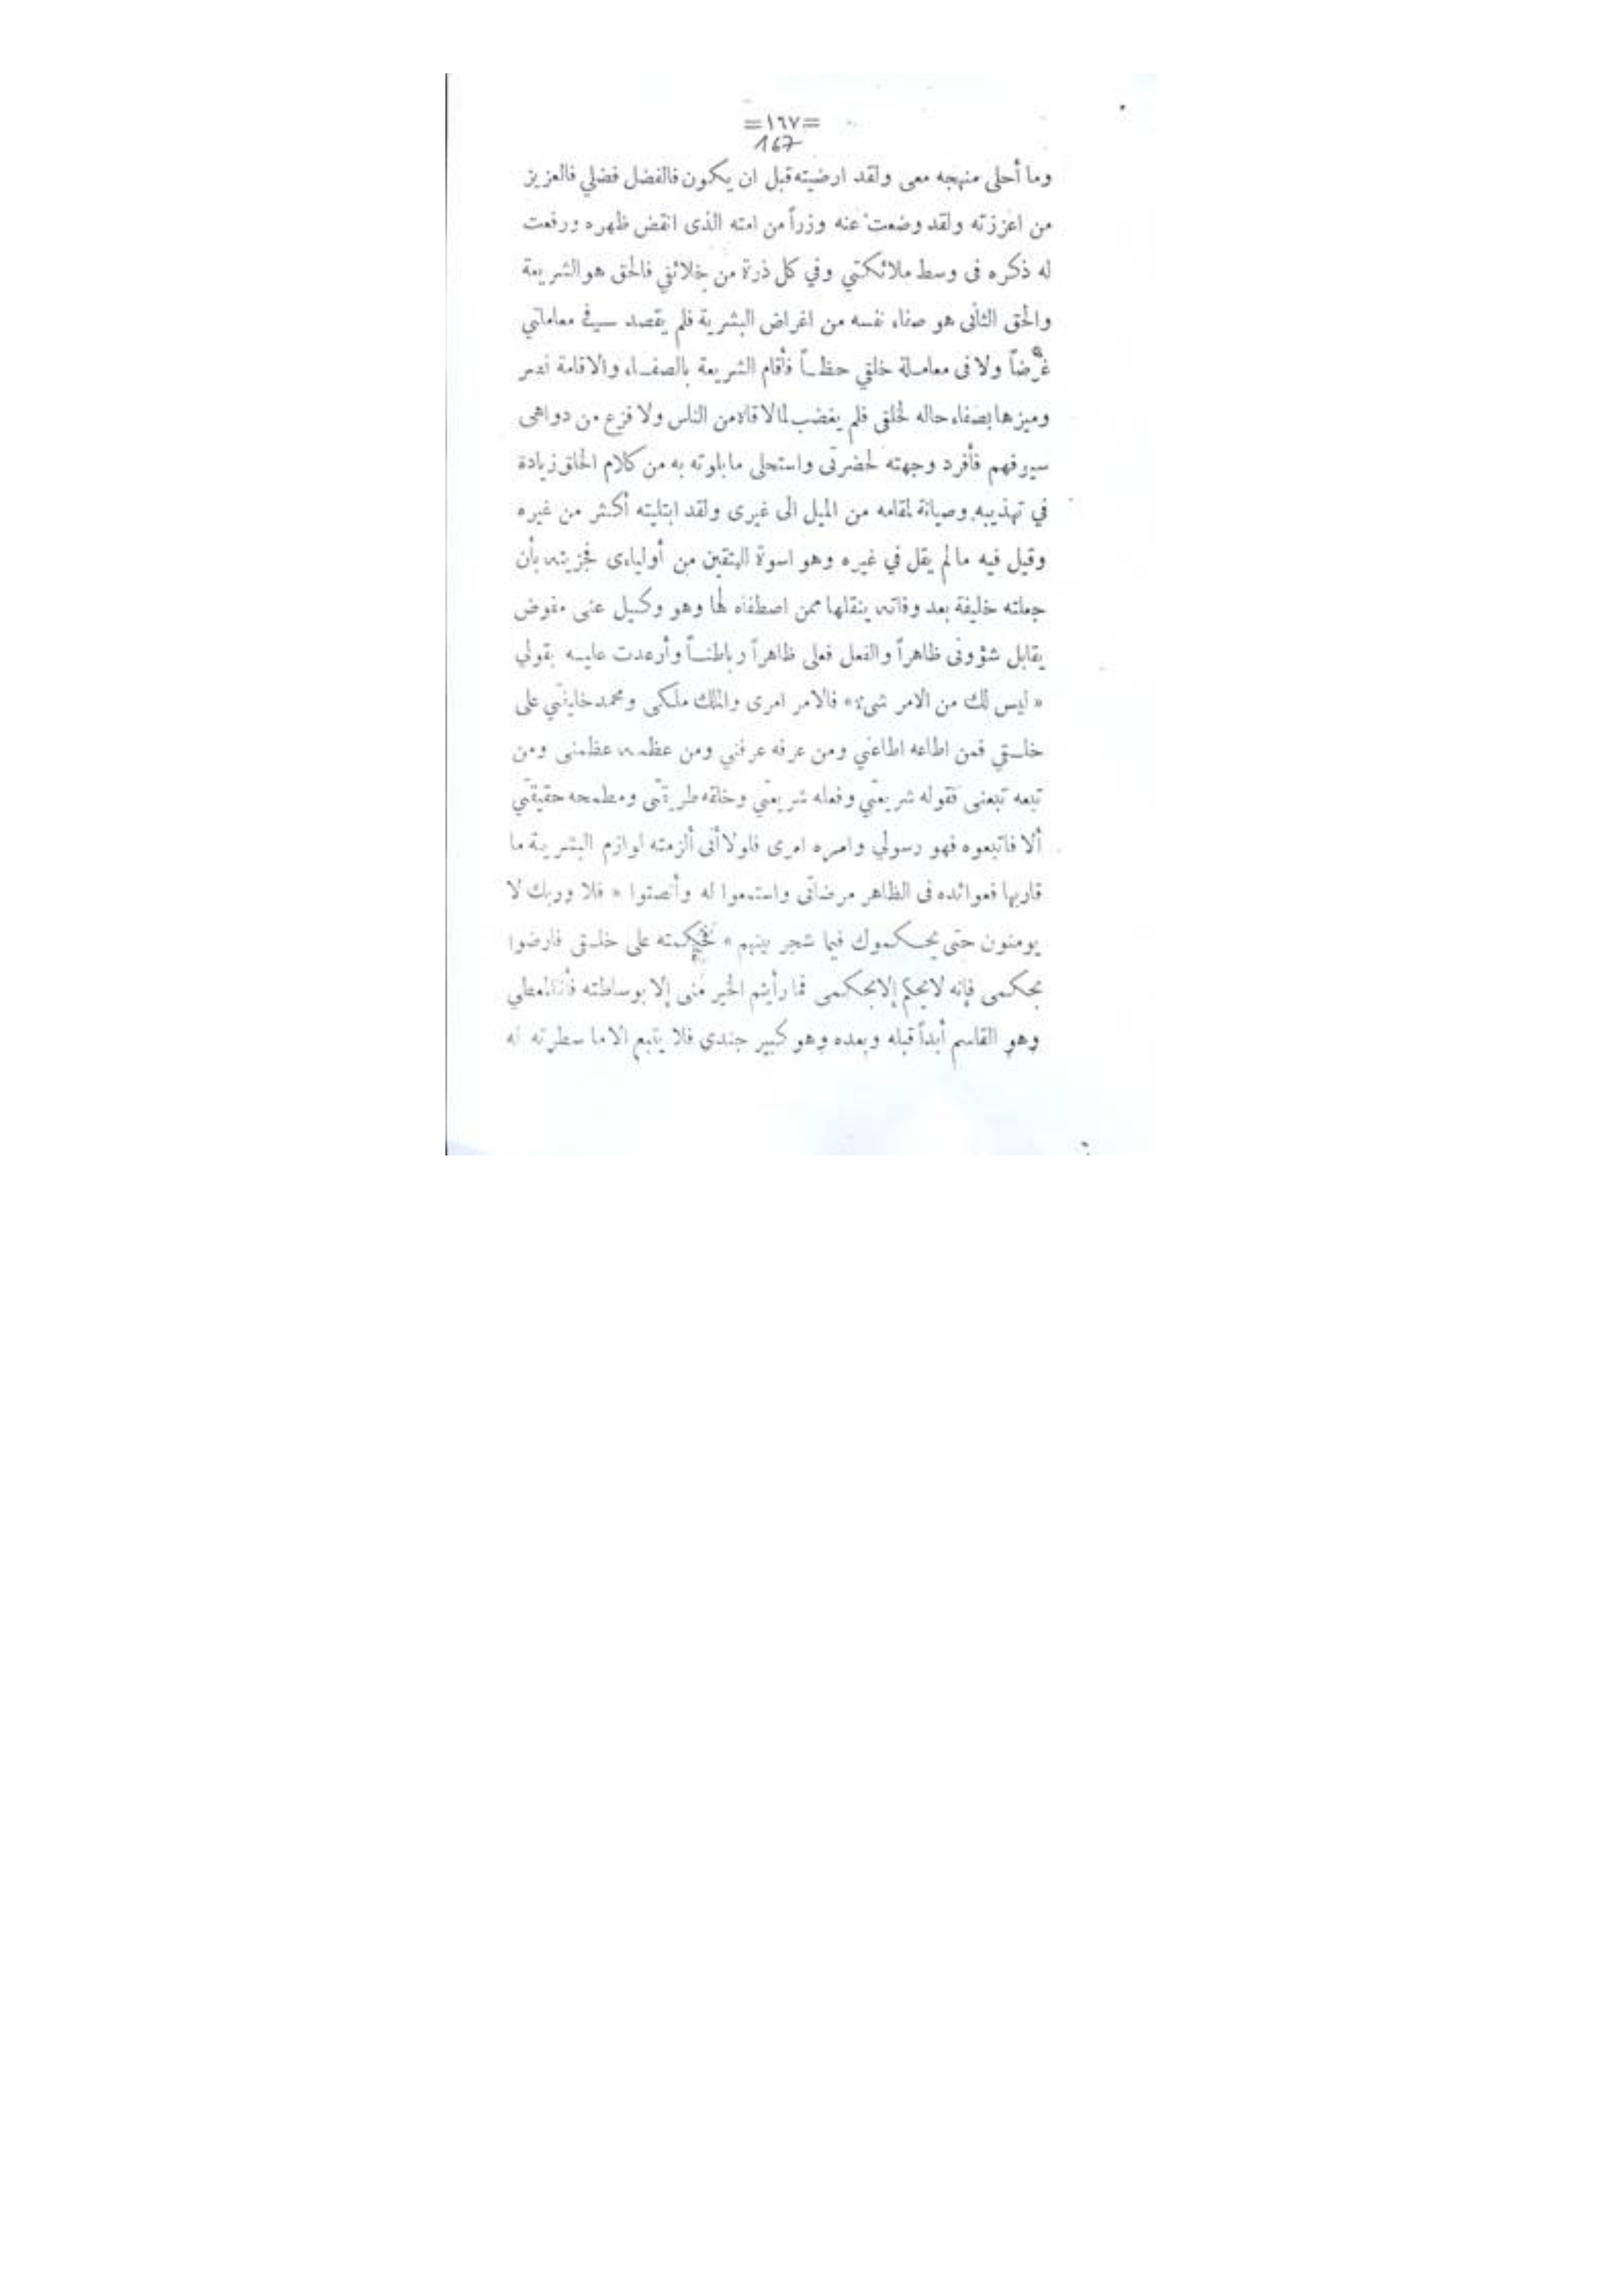 =١٦٧=
167
وما أحلى منهجه معى ولقد ارضيته قبل ان يكون فالفضل فضلي فالعزيز
من اعززته ولقد وضعت عنه وزراً من امته الذى انقض ظهره ورفعت
له ذكره فى وسط ملائكتي وفي كل ذرة من خلائقي فالحق هو الشريعة
والحق الثانى هو صفاء نفسه من اغراض البشرية فلم يقصد في معاملتي
غرضاً ولا فى معاملة خلقي حظاً فأقام الشريعة بالصفاء والاقامة
وميزها بصفاء حاله لخلقى فلم يغضب لما لاقاه من الناس ولا فزع من دواهى
سيوفهم فأفرد وجهته لحضرتى واستحلى ما بلوته به من كلام الخلق زيادة
في تهذيبه وصيانة لمقامه من الميل الى غيرى ولقد ابتليته أكثر من غيره
وقيل فيه مالم يقل في غيره وهو اسوة المتقين من أولياءى فجزيته بأن
جعلته خليفة بعد وفاته ينقلها ممن اصطفاه لها وهو وكيل عنى مفوض
يقابل شؤونى ظاهراً والفعل فعلى ظاهراً وباطنـاً وأرعدت عليه بقولي
« ليس لك من الامر شىء» فالامر امرى والملك ملكى ومحمد خليفتي على
خلـقي فمن اطاعه اطاعني ومن عرفه عرفني ومن عظمه عظمنى ومن
تبعه تبعنى فقوله شريعتي وفعله شريعتي وخلقه طريقتى ومطمحه حقيقتي
ألا فاتبعوه فهو رسولي وامره امرى فلولا أنى ألزمته لوازم البشرية ما
قاربها فعوائده فى الظاهر مرضاتى واستمعوا له وأنصتوا « فلا وربك لا
يومنون حتى يحـكموك فيما شجر بينهم » فحكمته على خلـقى فارضوا
بحكمى فإنه لايحكم إلابحكمى فما رأيتم الخير منى إلا بوساطته فأناالمعطي
وهو القاسم أبداً قبله وبعده وهو كبير جندى فلا يتبع الا ما سطرته له